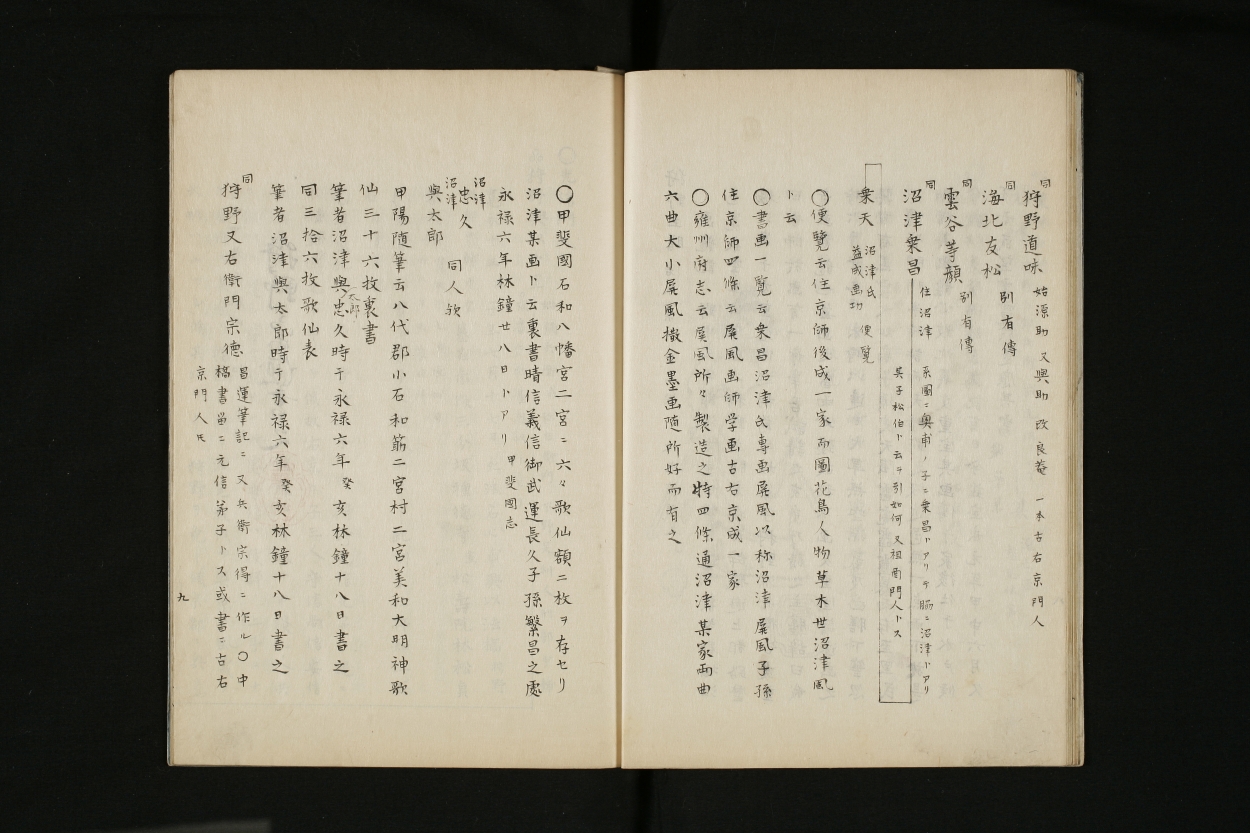 同
狩野道味
始源助 又興助 改良菴 一本古右京門人
同
海北友松
別有傳
同
雲谷等顔
別有傳
同
沼津乗昌
住沼津
系圖ニ奥甫ノ子ニ乗昌トアリテ 脇ニ沼津トアリ
其子松伯ト云ヲ引如何 又祖酉門人トス
乗天
沼津氏 便覧
益成画功
〇便覧云住京師後成一家而圖花鳥人物草木世沼津風
ト云
〇書画一覧云乗昌沼津氏專画屏風以称沼津屏風子孫
住京師四條云屏風画師学画古右京成一家
〇雍州府志云屏風所々製造之特四條通沼津某家両曲
六曲大小屏風撒金墨画随所好而有之
〇甲斐國石和八幡宮二宮ニ六々歌仙額二枚ヲ存セリ
沼津某画ト云裏書晴信義信御武運長久子孫繁昌之處
永禄六年林鐘廿八日トアリ 甲斐國志
沼津
忠久
沼津
與太郎
同人欤
甲陽随筆云八代郡小石和筋二宮村二宮美和大明神歌
仙三十六枚裏書
筆者沼津與忠久時于永禄六年癸亥林鐘十八日書之
太郎
同三拾六枚歌仙表
筆者沼津與太郎時于永禄六年癸亥林鐘十八日書之
同
狩野又右衛門宗德
昌運筆記ニ又兵衛宗得ニ作ル〇中
橋書畄ニ元信弟子トス或書ニ古右
京門人氏
九